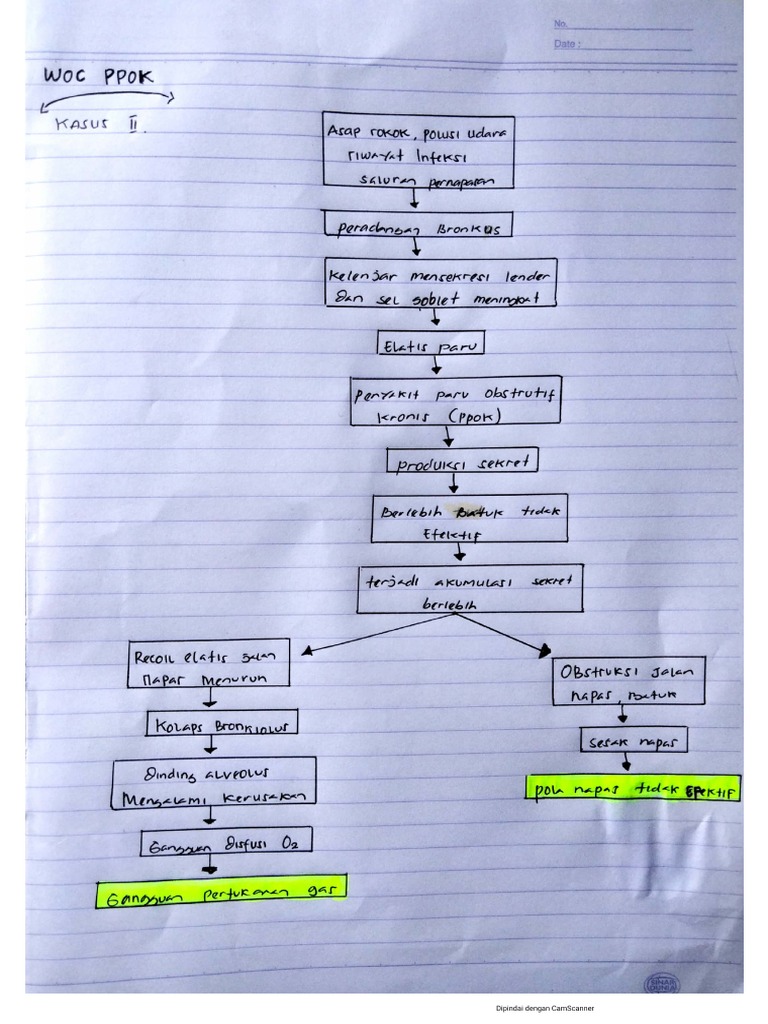 No.
Date :
WOC PPOK
KASUS II.
Asap rokok, polusi udara
riwayat Infeksi
saluran pernapasan
peradangan Bronkus
Kelenjar mensekresi lender
dan sel goblet meningkat
Elatis paru
penyakit paru obstrutif
kronis (PPOK)
produksi sekret
Berlebih Batuk tidak
Efektif
terjadi akumulasi sekret
berlebih
Recoil elatis jalan
napas menurun
Kolaps Bronkiolus
Dinding alveolus
Mengalami kerusakan
Gangguan Disfusi O2
Gangguan pertukaran gas
OBstruksi jalan
napas, Batuk
sesak napas
pola napas tidak EFEKTIF
SINAR
DUNIA
Dipindai dengan CamScanner